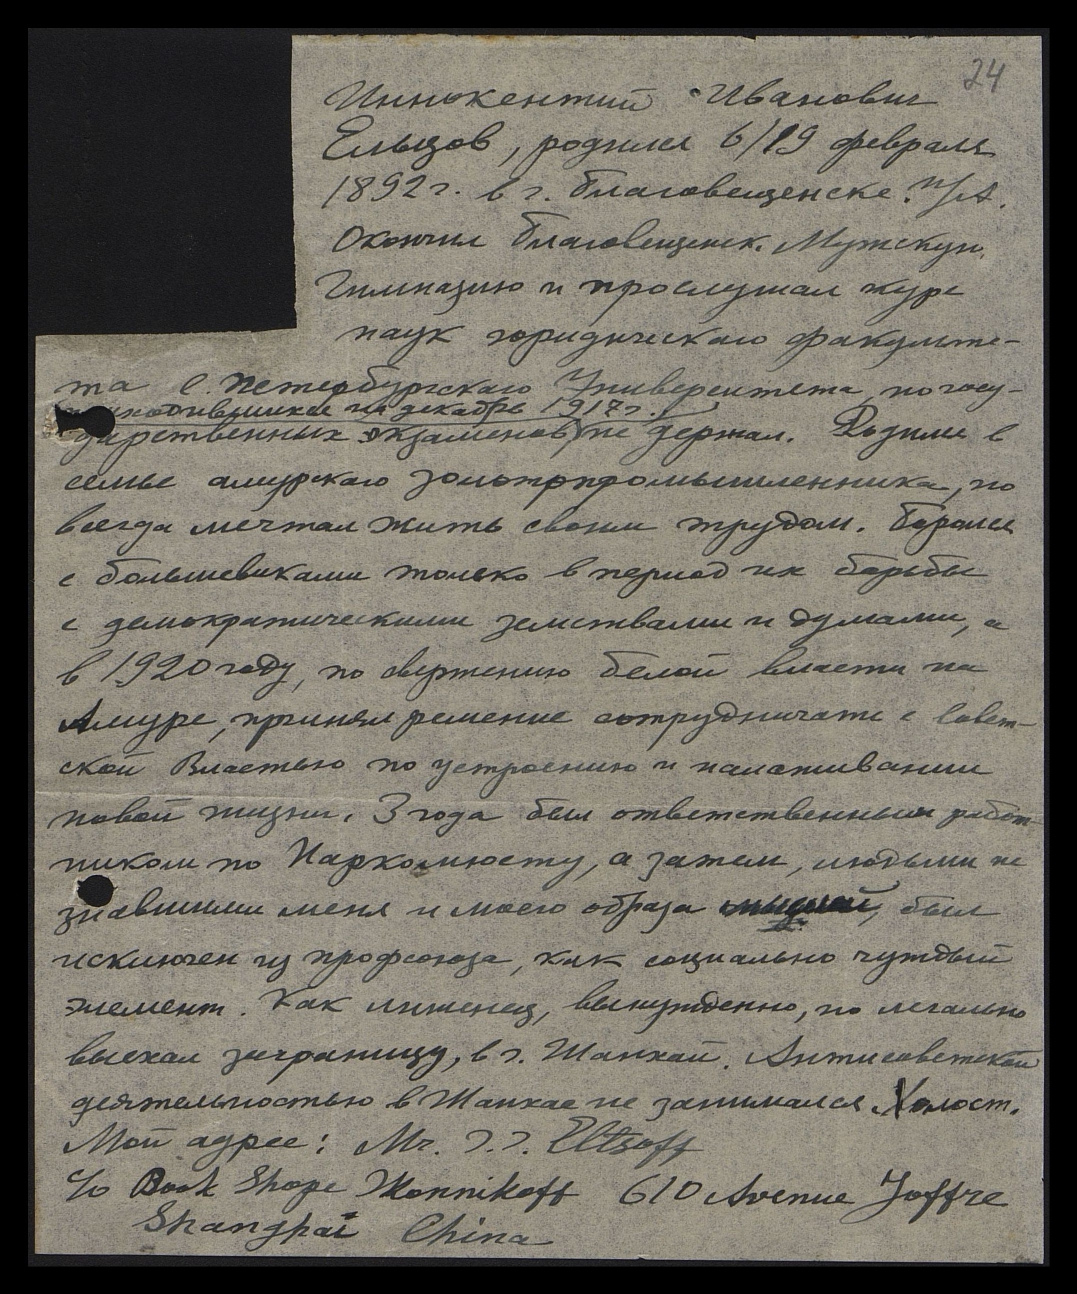 24
Иннокентий Иванович
Ельцов, родился 6/19 февраля
1892 г. в г. Благовещенске н/А.
Окончил Благовещенск. Мужскую
Гимназию и прослушал курс
наук юридическаго факульте-
та С. Петербургскаго Университета, но госу-
на декабрь 1917 г.
дарственных экзаменов, не держал. Родился в
семье амурскаго золотопромышленника, но
всегда мечтал жить своим трудом. Боролся
с большевиками только в период их борьбы
с демократическими земствами и думами, а
в 1920 году, по свержению белой власти на
Амуре, принял решение сотрудничать с Совет-
ской Властью по устроению и налаживании
новой жизни. 3 года был ответственным работ-
ником по Наркомюсту, а затем, людьми не
знавшими меня и моего образа был
исключен из профсоюза, как социально чуждый
элемент. Как лишенец, вынужденно, но легально
выехал заграницу, в г. Шанхай. Антисоветской
деятельностью в Шанхае не занимался. Холост.
Мой адрес: Mr. J. J. Eltzoff
c/o Book Shope Jkonnikoff 610 Avenue Joffre
Shanghai China